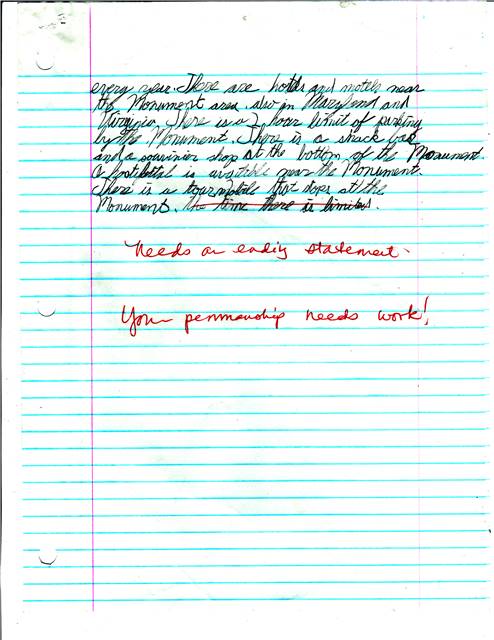 every year. There are hotels and motels near
the Monument area. also in Maryland and
Virginia. There is a 2 hour limit of parking
by the Monument. There is a snack bar
and a souvinier shop at the bottom of the Monument.
is availible near the Monument.
There is a that stops at the
Monument. time there is limited.
Needs an ending statement.
Your penmanship needs work!